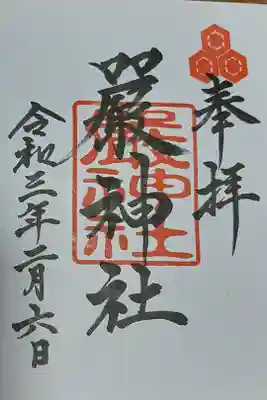 奉拝
嚴神社
嚴神社
令和三年二月六日